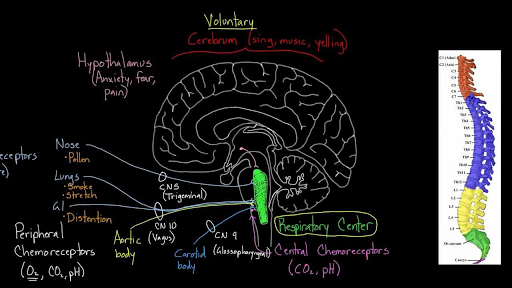 Voluntary
Cerebrum (sing, music, yelling)
Hypothalamus
(Anxiety, fear,
pain)
Nose
• Pollen
eceptors
Lungs
• Smoke
• Stretch
GI
• Distention
CN5
(Trigeminal)
CN 10
(Vagus)
CN 9
(Glossopharyngeal)
Peripheral
Chemoreceptors
(O2, CO2, pH)
Aortic
body
Carotid
body
Respiratory Center
Central Chemoreceptors
(CO2, pH)
C1 (Atlas)
C2 (Axis)
C3
C4
C5
C6
C7
Th1
Th2
Th3
Th4
Th5
Th6
Th7
Th8
Th9
Th10
Th11
Th12
L1
L2
L3
L4
L5
Os sacrum
Coccyx